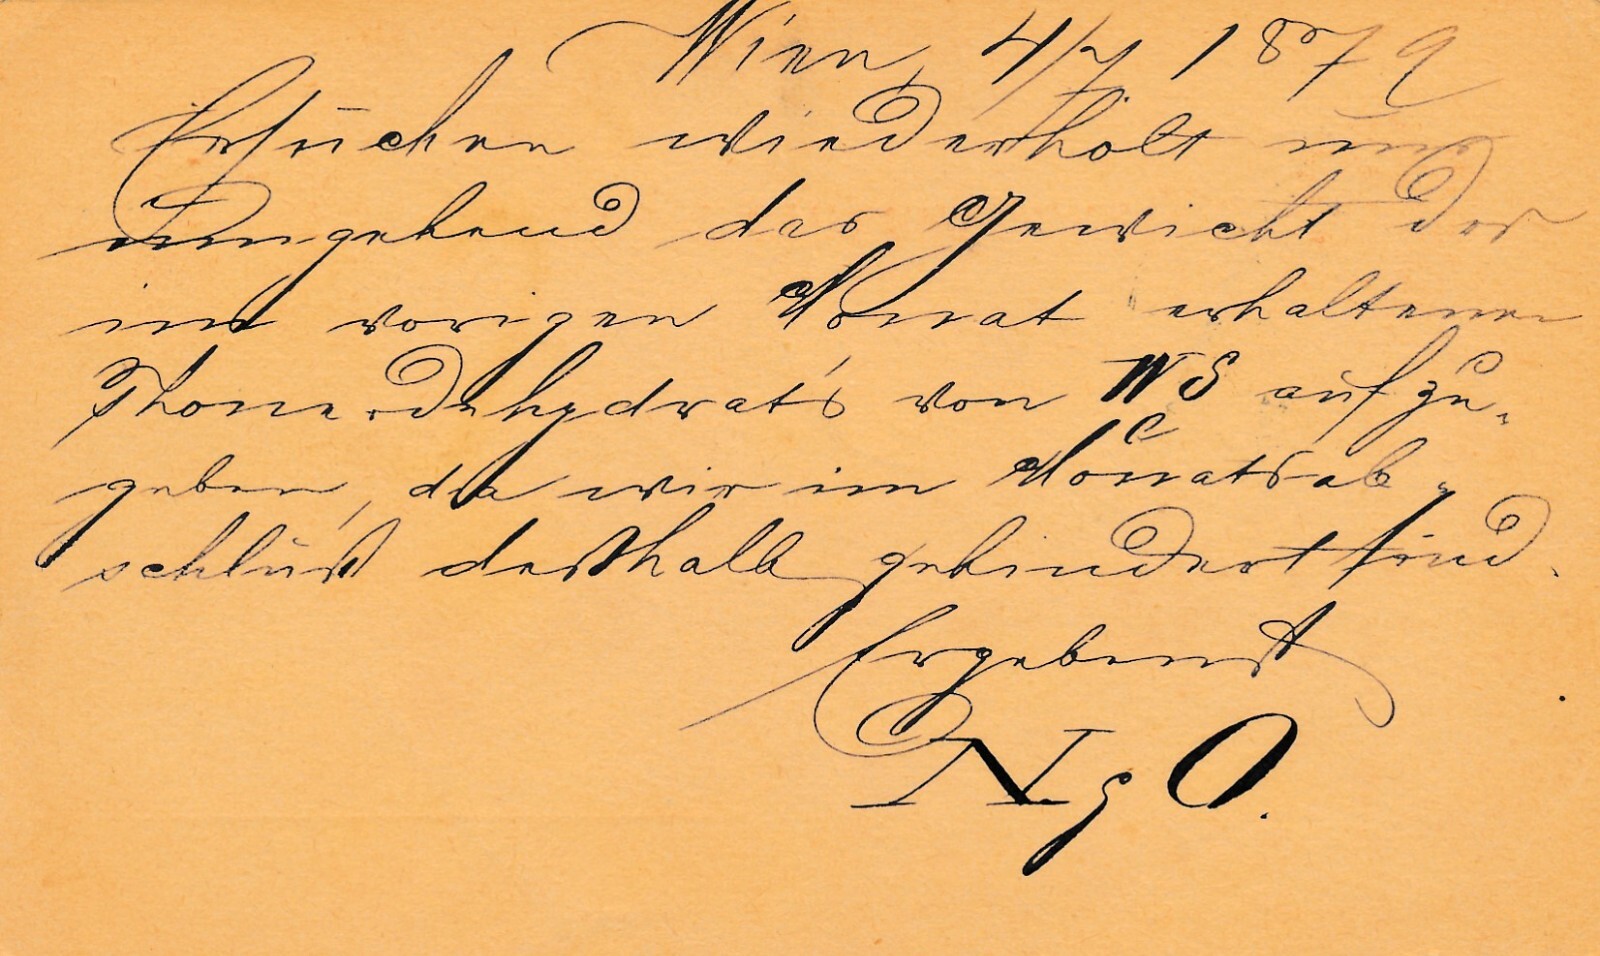 Wien, 4/7 1879
Ersuchen wiederholt uns
umgehend das Gewicht des
im vorigen Monat erhaltenen
Thonerdehydrat's von WS aufzu-
geben, da wir im Monatsab-
schluß deßhalb gehindert sind.
Ergebenst
N O.